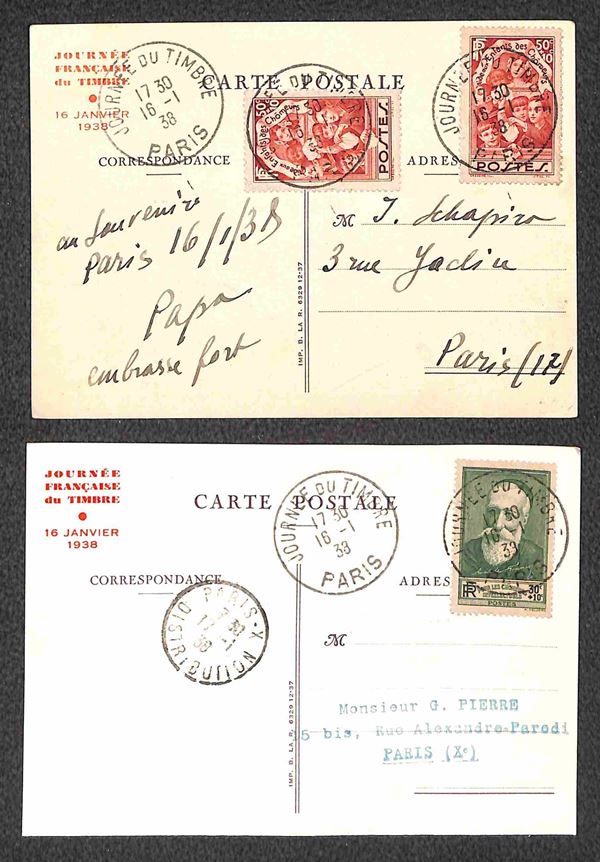 JOURNÉE
FRANÇAISE
du TIMBRE
16 JANVIER
1938
JOURNÉE DU TIMBRE
17 30
16 -1
38
PARIS
CARTE POSTALE
50c
Chômeurs
POSTES
JOURNÉE DU TIMBRE
17 30
16 -1
38
PARIS
50c
Enfants des Chômeurs
POSTES
CORRESPONDANCE
ADRES
au souvenir
Paris 16/1/38
Papa
embrasse fort
M J. Schapiro
3 rue Jadin
Paris (17)
IMP. B. LA R. 6329 12-37
JOURNÉE
FRANÇAISE
du TIMBRE
16 JANVIER
1938
CARTE POSTALE
JOURNÉE DU TIMBRE
17 30
16 -1
38
PARIS
JOURNÉE DU TIMBRE
17 30
16
38
RF
POUR LES CHÔMEURS
INTELLECTUELS
30c
+10c
POSTES
CORRESPONDANCE
ADRES
PARIS-X
DISTRIBUTION
30
-1
38
M
Monsieur G. PIERRE
5 bis, Rue Alexandre-Parodi
PARIS (Xe)
IMP. B. LA R. 6329 12-37